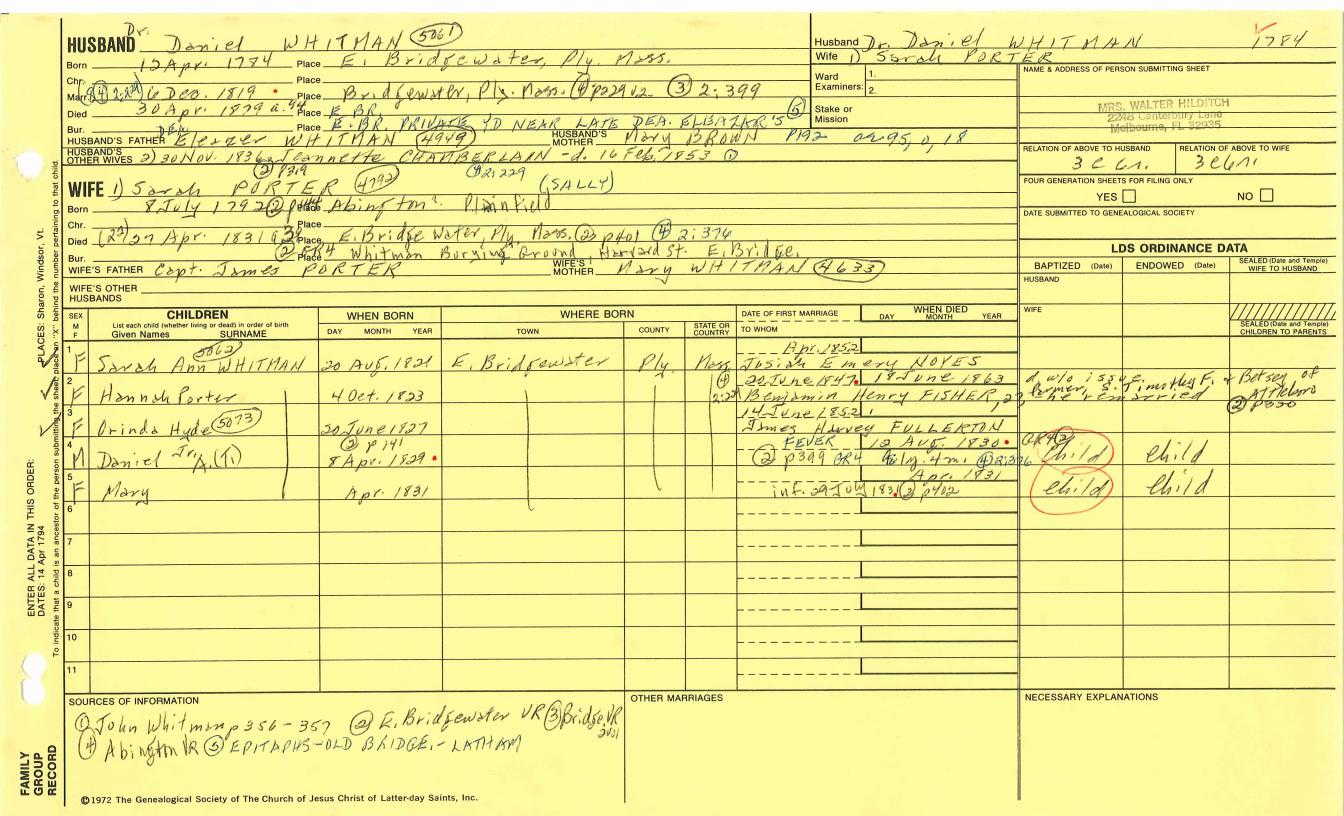 Dr.
HUSBAND Daniel WHITMAN 5061
Born 12 Apr. 1784 Place E. Bridgewater, Ply. Mass.
Chr. Place
Marr. 6 Dec. 1819 Place Bridgewater, Ply. Mass. ④ p229 v2 ③ 2;399
Died 30 Apr. 1879 a. 94 Place E BR.
Bur. Place E. BR. PRIVATE YD NEAR LATE DEA. ELEAZER'S ⑤
HUSBAND'S FATHER DEA. Eleazer WHITMAN 4949 HUSBAND'S MOTHER Mary BROWN P192 ae 95, 0, 18
HUSBAND'S OTHER WIVES 2) 30 Nov. 1836 Jeannette CHAMBERLAIN - d. 16 Feb. 1853 ①
② p319 ④ 2;229
WIFE 1) Sarah PORTER 4792 (SALLY)
Born 8 July 1792 Place Abington? Plainfield
Chr. Place
Died 27 Apr. 1831 Place E. Bridge Water, Ply. Mass. ② p401 ④ 2;376
Bur. Place Whitman Burying Ground, Harvard St. E. Bridge.
WIFE'S FATHER Capt. James PORTER WIFE'S MOTHER Mary WHITMAN 4633
WIFE'S OTHER HUSBANDS
Husband Dr. Daniel WHITMAN 1784
Wife 1) Sarah PORTER
Ward 1.
Examiners: 2.
Stake or
Mission
NAME & ADDRESS OF PERSON SUBMITTING SHEET
MRS. WALTER HILDITCH
2248 Canterbury Lane
Melbourne, FL 32935
RELATION OF ABOVE TO HUSBAND RELATION OF ABOVE TO WIFE
FOUR GENERATION SHEETS FOR FILING ONLY
YES NO
DATE SUBMITTED TO GENEALOGICAL SOCIETY
LDS ORDINANCE DATA
BAPTIZED (Date) ENDOWED (Date) SEALED (Date and Temple) WIFE TO HUSBAND
HUSBAND
WIFE
SEALED (Date and Temple) CHILDREN TO PARENTS
SEX M F CHILDREN WHEN BORN WHERE BORN DATE OF FIRST MARRIAGE WHEN DIED
List each child (whether living or dead) in order of birth
Given Names SURNAME DAY MONTH YEAR TOWN COUNTY STATE OR COUNTRY TO WHOM DAY MONTH YEAR
5062 Apr. 1852
1 F Sarah Ann WHITMAN 20 Aug. 1821 E. Bridgewater Ply. Mass. Josiah Emery NOYES
④ 20 June 1847 18 June 1863 d w/o issue
2 F Hannah Porter 4 Oct. 1823 Benjamin Henry FISHER, he remarried
Farmer, s. Timothy F. & Betsey of Attleboro ② p320
14 June 1852
3 F Orinda Hyde 5073 20 June 1827 James Harvey FULLERTON
② p141 FEVER 12 Aug. 1830 GR4 ②
4 M Daniel Jr. A. (T.) 8 Apr. 1829 ② p399 GR4 4 m. ④ 2;376 Child Child
Apr. 1831
5 F Mary Apr. 1831 inf. 29 July 1831 ② p402 Child Child
6
7
8
9
10
11
SOURCES OF INFORMATION
① John Whitman p356-357 ② E. Bridgewater VR ③ Bridge. VR
④ Abington VR ⑤ EPITAPHS-OLD BRIDGE.- LATHAM
OTHER MARRIAGES
NECESSARY EXPLANATIONS
©1972 The Genealogical Society of The Church of Jesus Christ of Latter-day Saints, Inc.
FAMILY
GROUP
RECORD
ENTER ALL DATA IN THIS ORDER:
DATES: 14 Apr 1794
PLACES: Sharon, Windsor, Vt.
To indicate that a child is an ancestor of the person submitting the sheet, place an "X" behind the number pertaining to that child.